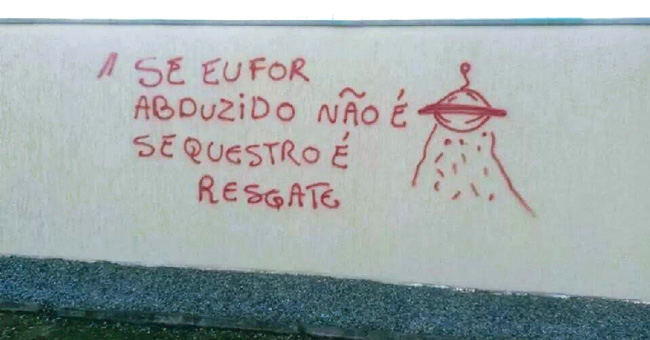 SE EU FOR
ABDUZIDO NÃO É
SEQUESTRO É
RESGATE